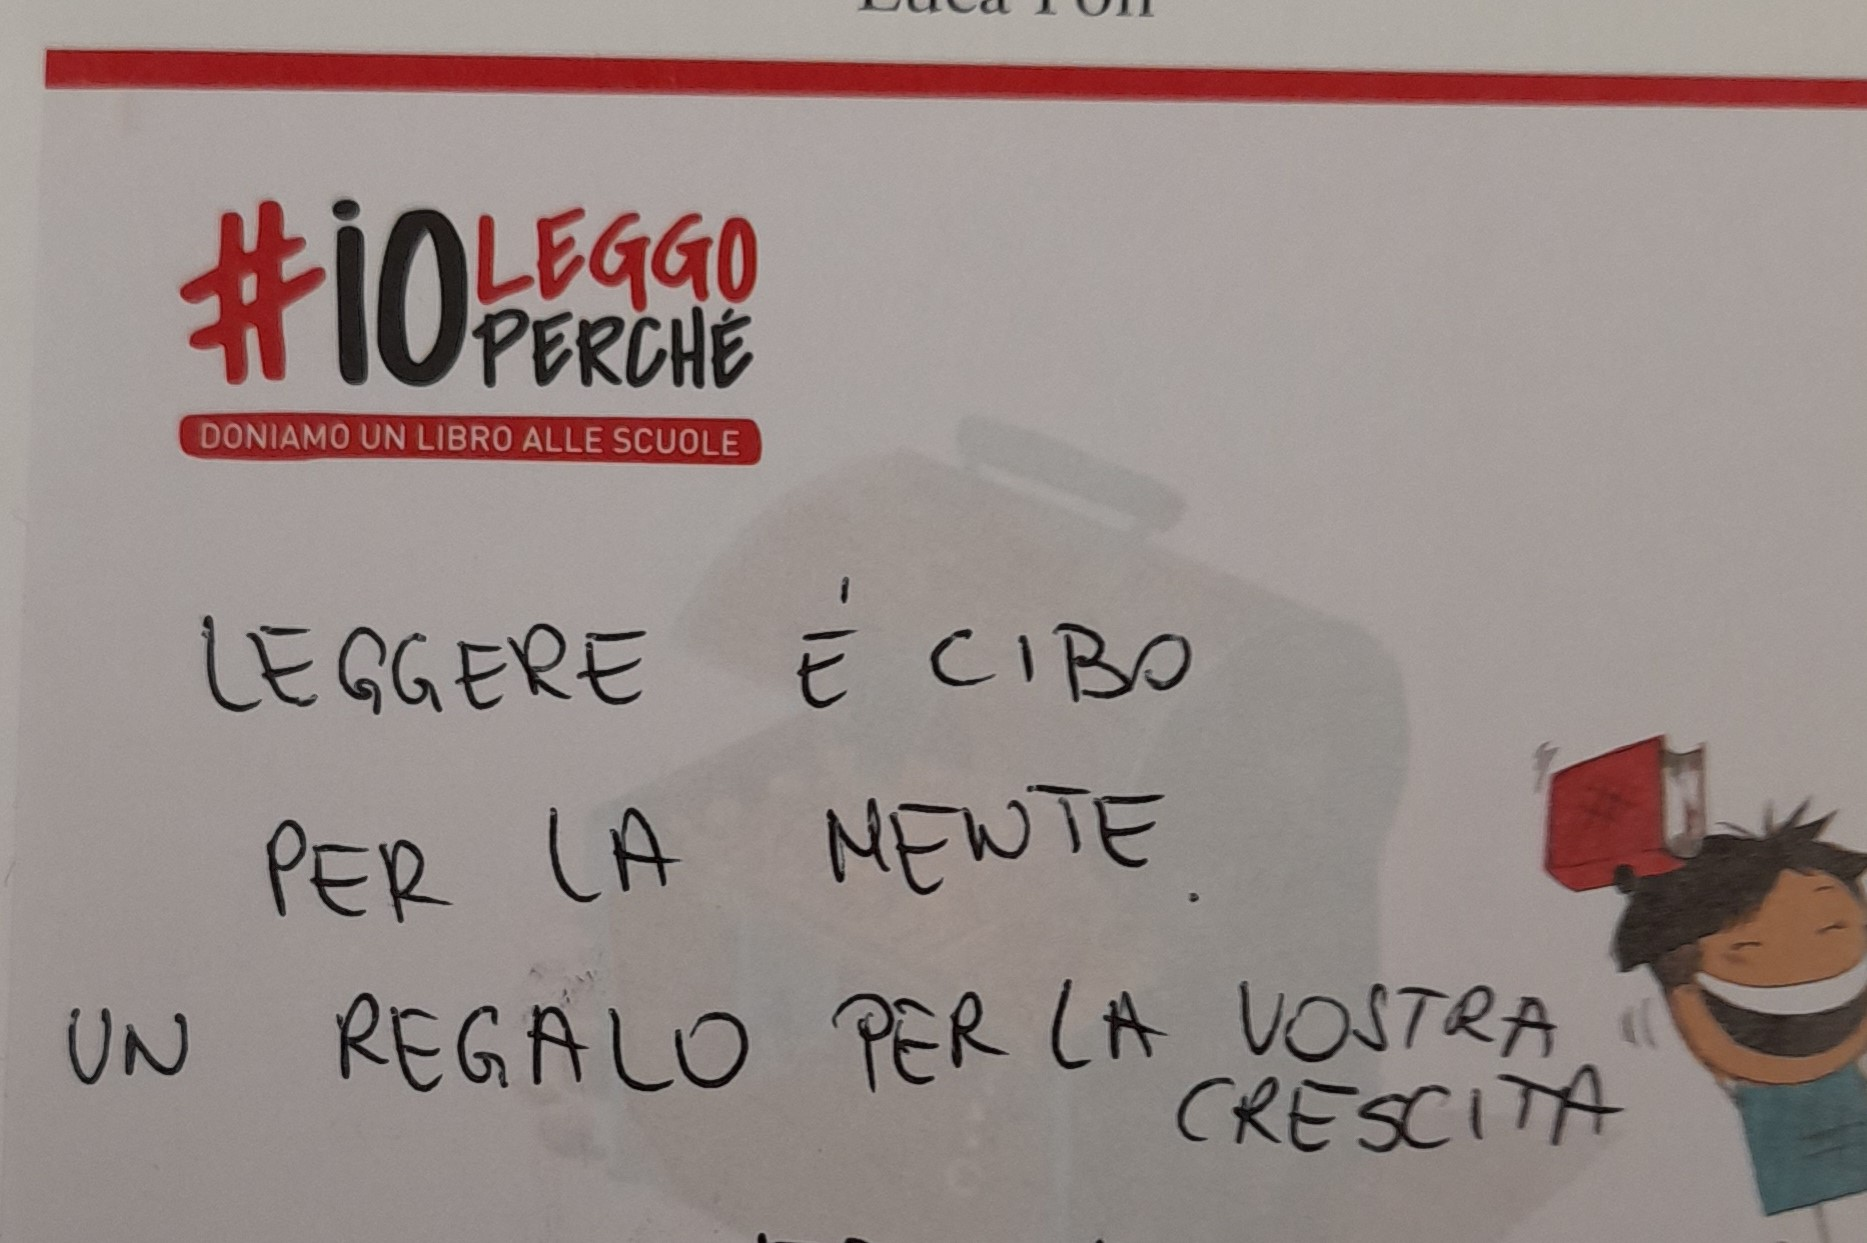 #iO LEGGO
PERCHÉ
DONIAMO UN LIBRO ALLE SCUOLE
LEGGERE É CIBO
PER LA MENTE.
UN REGALO PER LA VOSTRA
CRESCITA